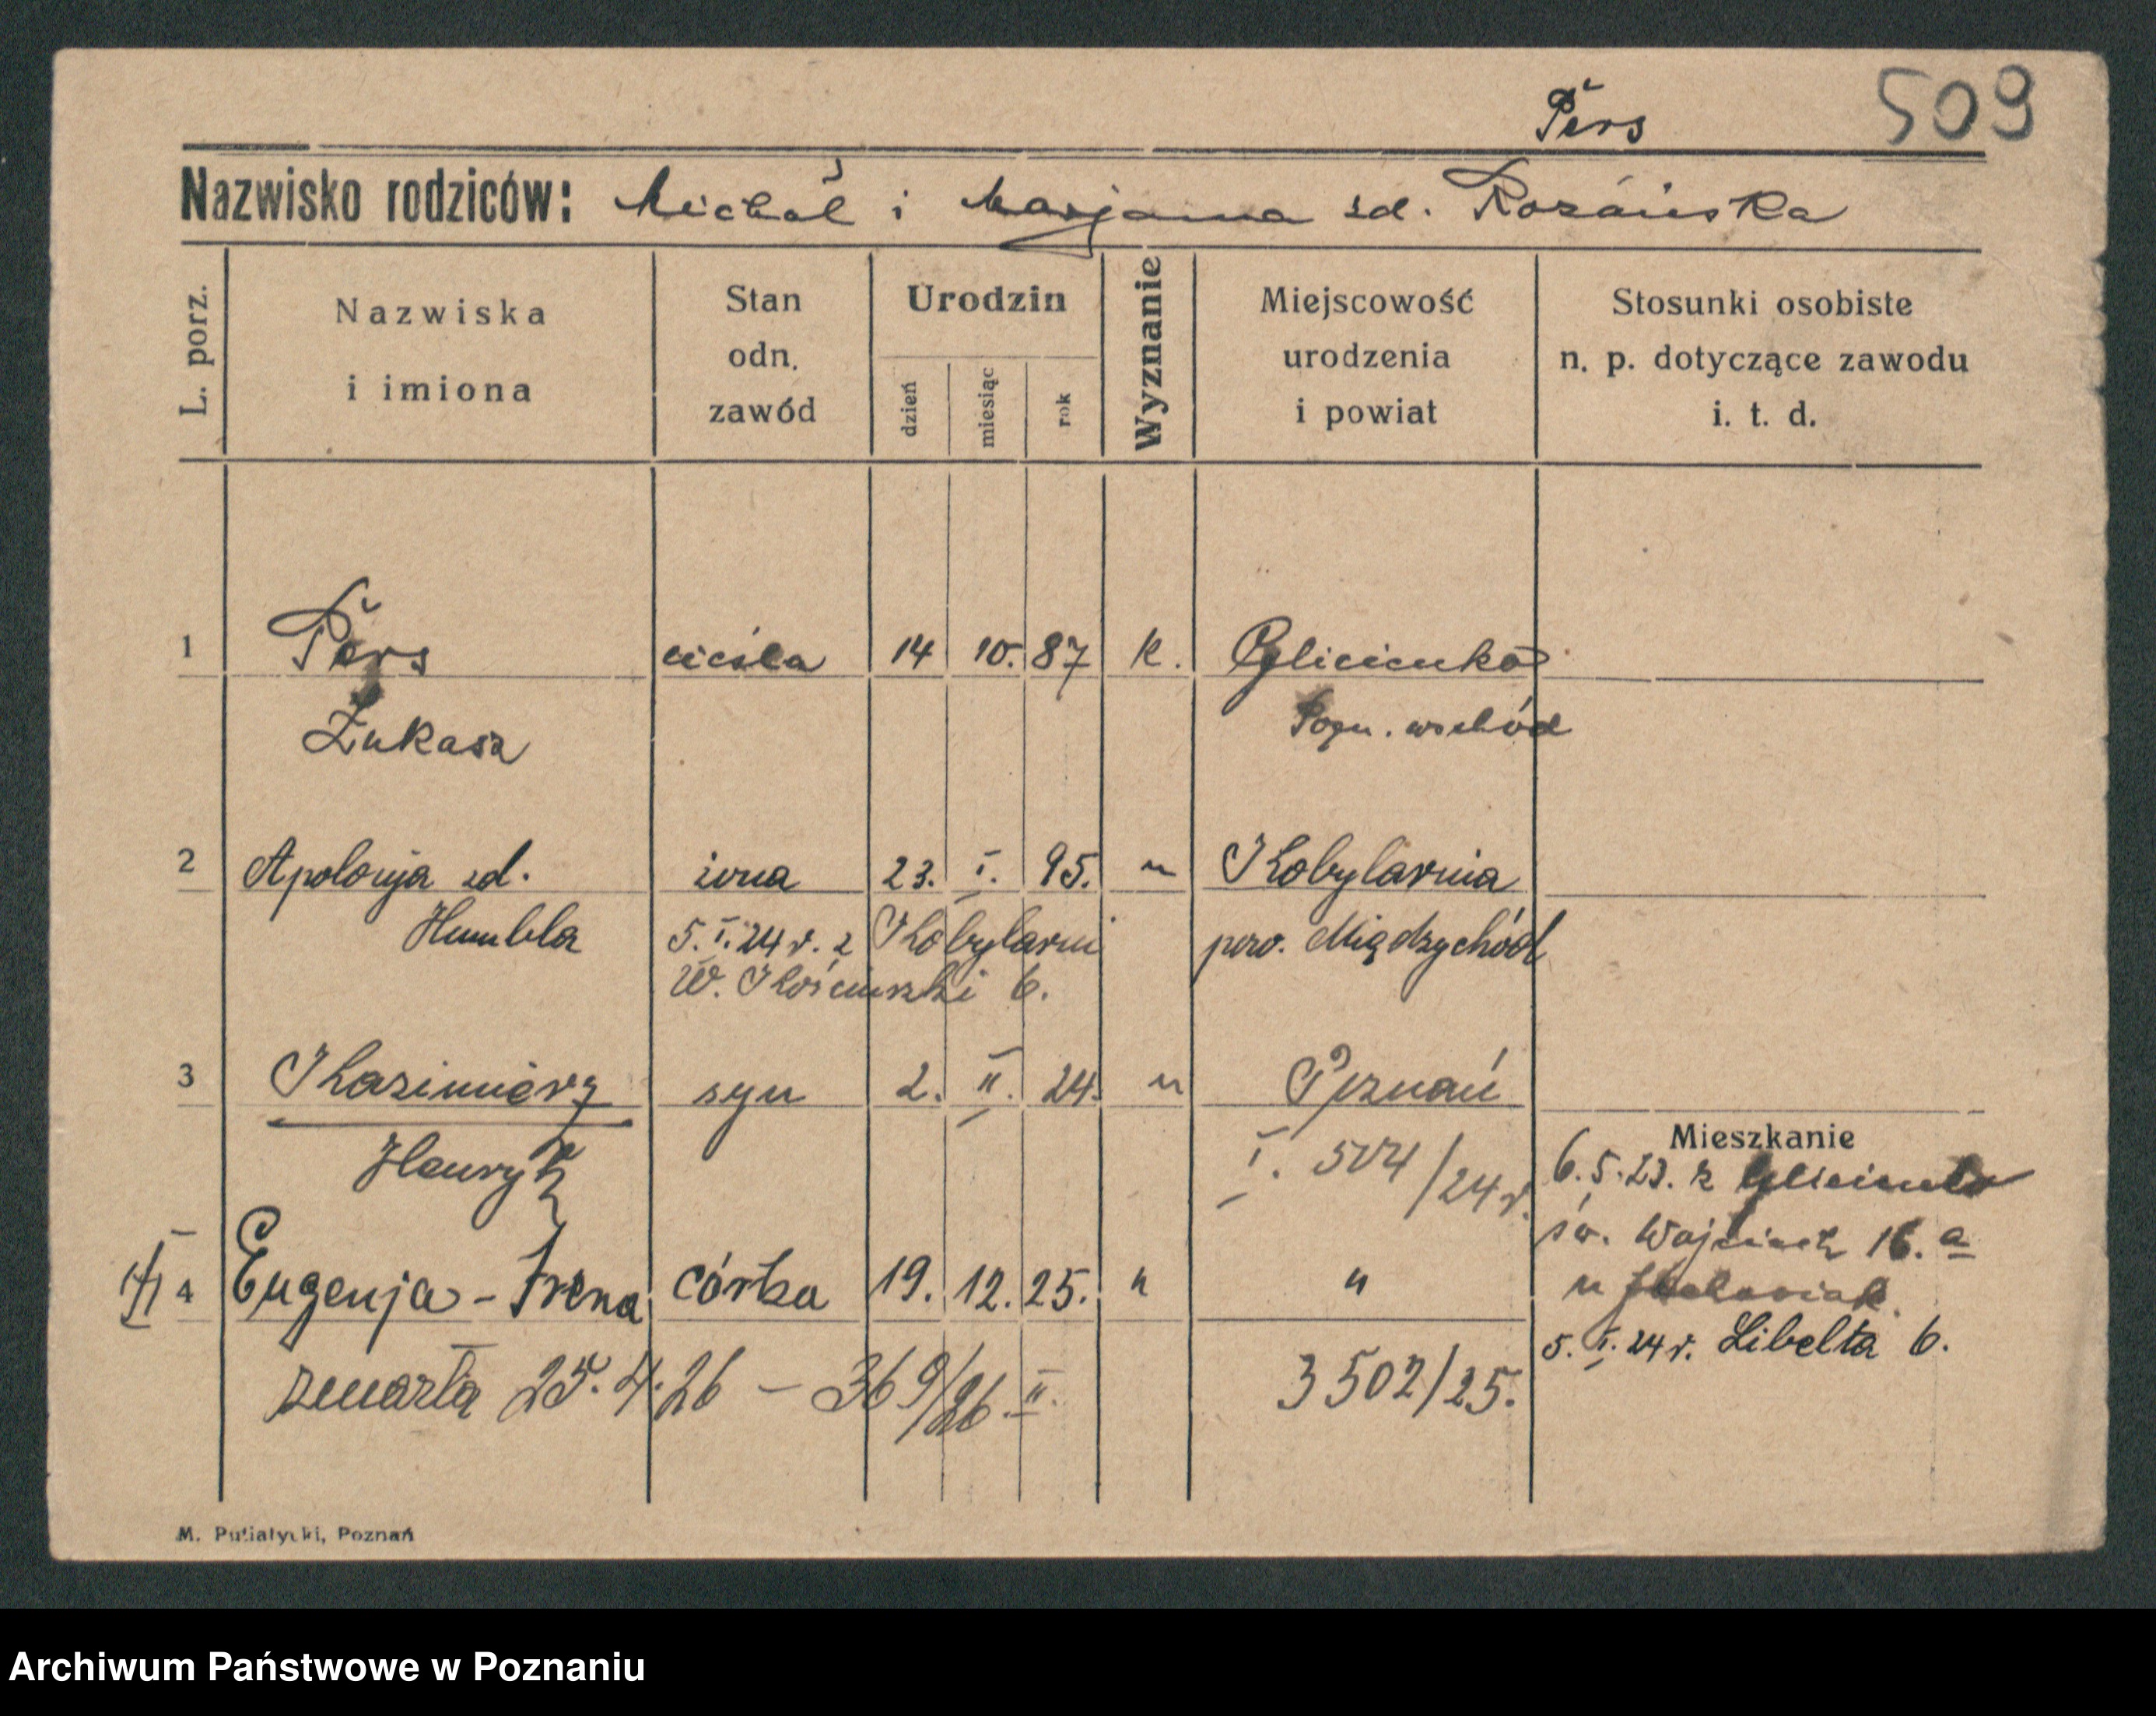 Pers 509
Nazwisko rodziców: Michał i Marjanna zd. Rozańska
L. porz.
Nazwiska i imiona
Stan odn. zawód
Urodzin
dzień
miesiąc
rok
Wyznanie
Miejscowość urodzenia i powiat
Stosunki osobiste n. p. dotyczące zawodu i. t. d.
1 Pers cieśla 14 10. 87 k.
Łukasz wschód
2 Apolonja zd. żona 23. I. 95. " Kobylarnia
Humbla 5. I. 24 r. z Kobylarni pow. Międzychód
W. 6.
3 Kazimierz syn 2. II. 24. " Poznań
Mieszkanie
Henryk I. 504/24 r. 6. 5. 23. z
św. Wojciech 16. a
4 Eugenja - Irena córka 19. 12. 25. " "
u
5. I. 24 r. Libelta 6.
zmarła 25. 4. 26 - 369/26. II. 3502/25.
M. Putiatycki, Poznań
Archiwum Państwowe w Poznaniu